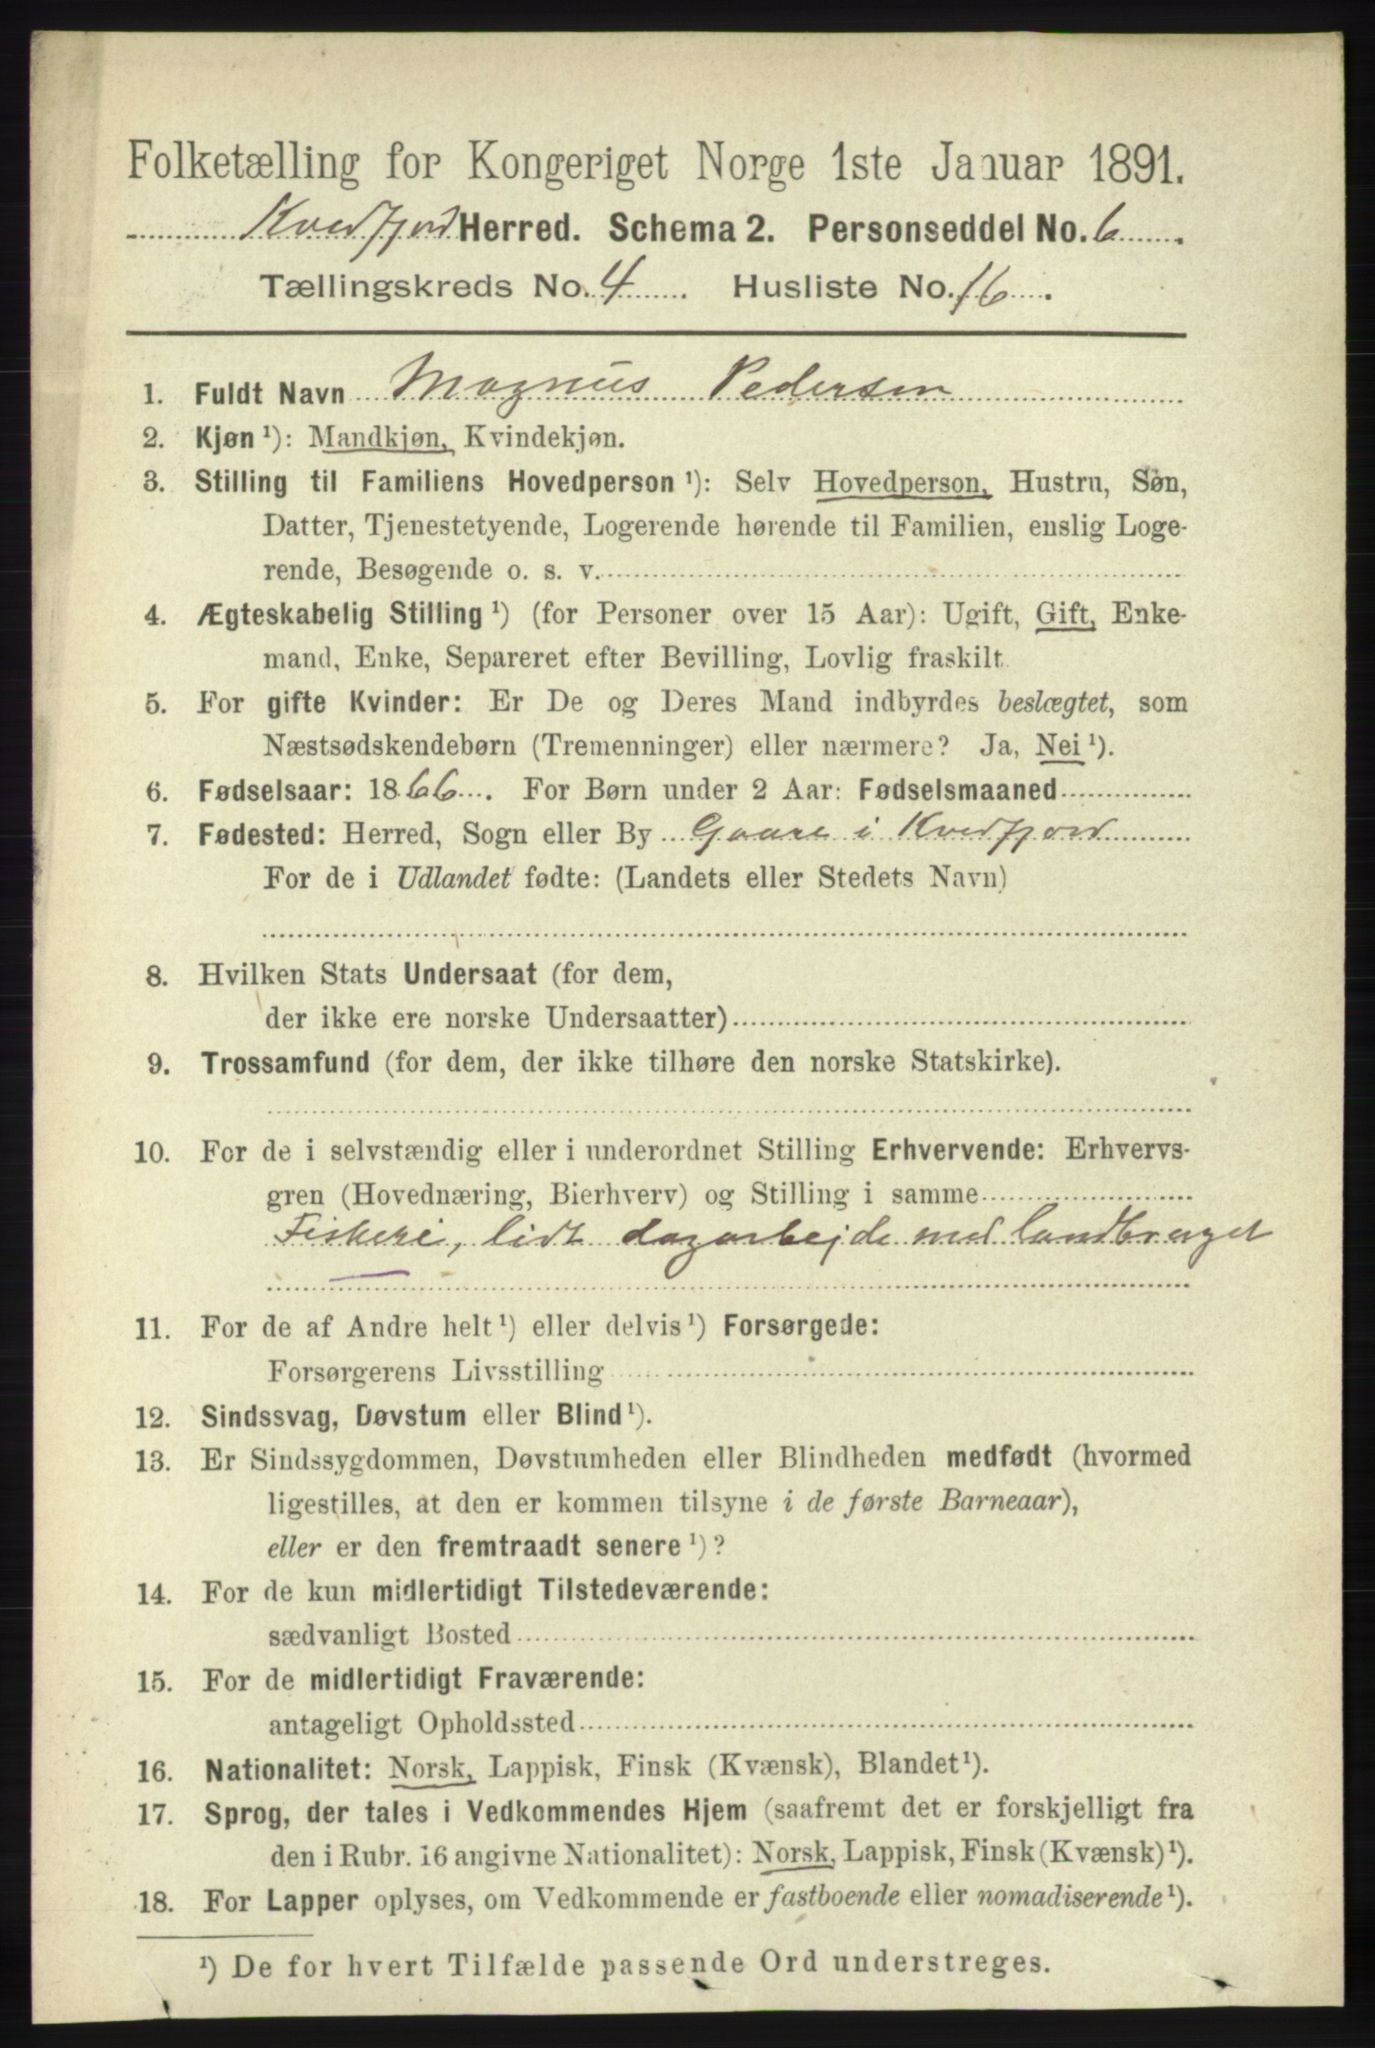 Folketælling for Kongeriget Norge 1ste Januar 1891.
Kvedfjord Herred. Schema 2. Personseddel No. 6
Tællingskreds No. 4 Husliste No. 16
1. Fuldt Navn Magnus Pedersen
2. Kjøn ¹): Mandkjøn, Kvindekjøn.
3. Stilling til Familiens Hovedperson ¹): Selv Hovedperson, Hustru, Søn,
Datter, Tjenestetyende, Logerende hørende til Familien, enslig Loge-
rende, Besøgende o. s. v.
4. Ægteskabelig Stilling ¹) (for Personer over 15 Aar): Ugift, Gift, Enke-
mand, Enke, Separeret efter Bevilling, Lovlig fraskilt
5. For gifte Kvinder: Er De og Deres Mand indbyrdes beslægtet, som
Næstsødskendebørn (Tremenninger) eller nærmere? Ja, Nei ¹).
6. Fødselsaar: 1866. For Børn under 2 Aar: Fødselsmaaned
7. Fødested: Herred, Sogn eller By Gaare i Kvedfjord
For de i Udlandet fødte: (Landets eller Stedets Navn)
8. Hvilken Stats Undersaat (for dem,
der ikke ere norske Undersaatter)
9. Trossamfund (for dem, der ikke tilhøre den norske Statskirke).
10. For de i selvstændig eller i underordnet Stilling Erhvervende: Erhvervs-
gren (Hovednæring, Bierhverv) og Stilling i samme
Fiskeri, lidt dagarbejde med landbruget
11. For de af Andre helt ¹) eller delvis ¹) Forsørgede:
Forsørgerens Livsstilling
12. Sindssvag, Døvstum eller Blind ¹).
13. Er Sindssygdommen, Døvstumheden eller Blindheden medfødt (hvormed
ligestilles, at den er kommen tilsyne i de første Barneaar),
eller er den fremtraadt senere ¹)?
14. For de kun midlertidigt Tilstedeværende:
sædvanligt Bosted
15. For de midlertidigt Fraværende:
antageligt Opholdssted
16. Nationalitet: Norsk, Lappisk, Finsk (Kvænsk), Blandet ¹).
17. Sprog, der tales i Vedkommendes Hjem (saafremt det er forskjelligt fra
den i Rubr. 16 angivne Nationalitet): Norsk, Lappisk, Finsk (Kvænsk) ¹).
18. For Lapper oplyses, om Vedkommende er fastboende eller nomadiserende ¹).
¹) De for hvert Tilfælde passende Ord understreges.